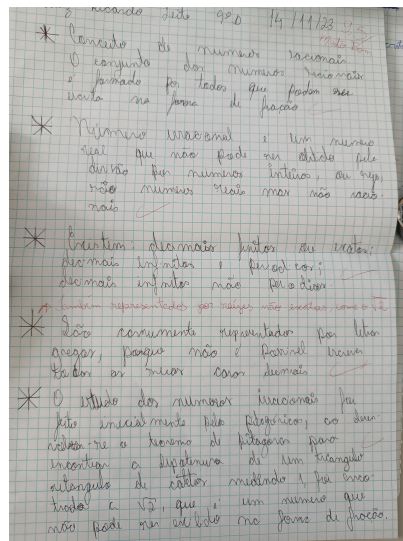 Ricardo Leite 9º D 14/11/23 9.5
Muito bom
* Conceito de numeros racionais
O conjunto dos numeros racionais
é formado por todos que podem ser
escrito na forma de fração
* Número irracional é um numero
real que não pode ser obtido pela
divisão por numeros inteiros, ou seja,
são numeros reais mas não racio-
nais
* Existem: decimais finitos ou exatos;
decimais infinitos e periodicos;
decimais infinitos não periodicos.
também representados por raizes não exatas, como a √2
* São comumente representados por letras
gregas, porque não é possivel escrever
todas as casas decimais
* O estudo dos numeros irracionais foi
feito inicialmente pelos pitagóricos, ao desen-
volver-se o teorema de pitagoras para
encontrar a hipotenusa de um triangulo
retangulo de catetos medindo 1 foi encon-
trado a √2, que é um numero que
não pode ser exibido na forma de fração.